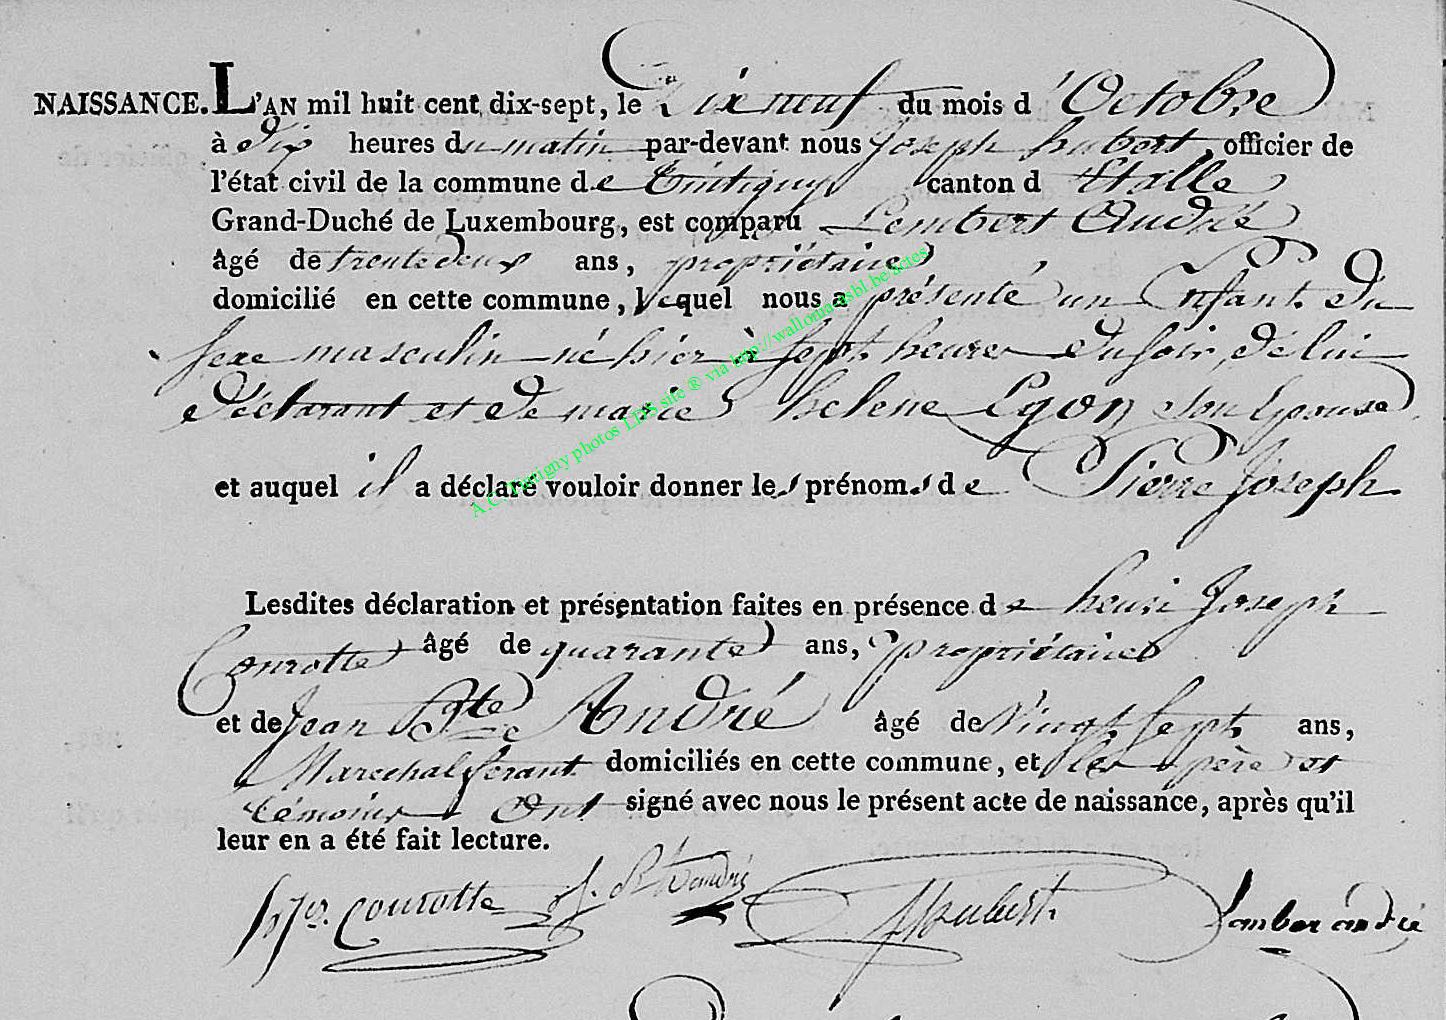 NAISSANCE. L'AN mil huit cent dix-sept, le Dix neuf du mois d'Octobre
à dix heures du matin par-devant nous Joseph hubert, officier de
l'état civil de la commune de Tintigny canton d'Etalle
Grand-Duché de Luxembourg, est comparu Lembert André
âgé de trente deux ans, propriétaire
domicilié en cette commune, lequel nous a présenté un Enfant du
sexe masculin né hier à sept heures du soir, de lui
déclarant et de marie helene Lgon, son Epouse
et auquel il a déclaré vouloir donner les prénoms de Pierre Joseph
Lesdites déclaration et présentation faites en présence de henri Joseph
Courotte âgé de quarante ans, propriétaire
et de Jean Bte André âgé de Vingt sept ans,
Marechal ferant domiciliés en cette commune, et les père et
témoins Ont signé avec nous le présent acte de naissance, après qu'il
leur en a été fait lecture.
courotte J. B andré JHubert. Lamber andré
A.C. Tintigny photos LDS site ® via http://wallonia-asbl.be/actes